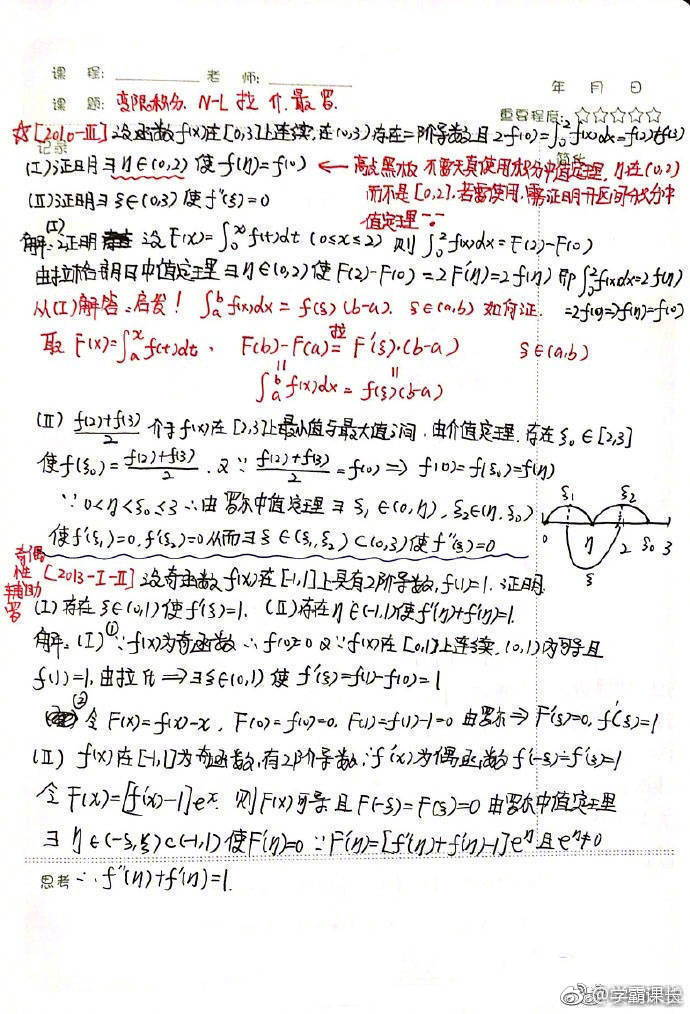 课 程: 老 师:
年 月 日
课 题: 变限积分. N-L 拉 介. 最 罗.
重要程度: ☆☆☆☆☆
☆[2010-Ⅲ] 设函数f(x)在[0,3]上连续,在(0,3)存在二阶导数且 2f(0)=∫₀²f(x)dx=f(2)+f(3)
记录
(Ⅰ)证明∃η∈(0,2) 使 f(η)=f(0) ← 高亮黑板 不要天真使用积分中值定理, η在(0,2)
(Ⅱ)证明∃ξ∈(0,3) 使 f''(ξ)=0 而不是[0,2],若需使用,需证明开区间积分中
值定理
解:(Ⅰ)证明 设 F(x)=∫₀ˣf(t)dt (0≤x≤2) 则 ∫₀²f(x)dx=F(2)-F(0)
由拉格朗日中值定理∃η∈(0,2)使F(2)-F(0)=2F'(η)=2f(η) 即∫₀²f(x)dx=2f(η)
=2f(0)⇒f(η)=f(0)
从(Ⅰ)解答=启发! ∫ₐᵇf(x)dx=f(ξ)(b-a). ξ∈(a,b) 如何证.
取 F(x)=∫ₐˣf(t)dt. F(b)-F(a)=拉 F'(ξ)·(b-a) ξ∈(a,b)
∫ₐᵇf(x)dx = f(ξ)(b-a)
(Ⅱ) (f(2)+f(3))/2 介于f(x)在[2,3]上最小值与最大值之间,由介值定理,存在ξ₀∈[2,3]
使f(ξ₀)=(f(2)+f(3))/2. 又∵(f(2)+f(3))/2=f(0)⇒f(0)=f(ξ₀)=f(η)
∵0<η<ξ₀≤3 ∴由罗尔中值定理∃ξ₁∈(0,η), ξ₂∈(η,ξ₀)
使f'(ξ₁)=0,f'(ξ₂)=0从而∃ξ∈(ξ₁,ξ₂)⊂(0,3)使f''(ξ)=0
ξ₁ ξ₂
0 η 2 ξ₀ 3
ξ
奇偶性辅助罗
[2013-Ⅰ-Ⅱ] 设奇函数f(x)在[-1,1]上具有2阶导数,f(1)=1.证明
(Ⅰ)存在ξ∈(0,1)使f'(ξ)=1. (Ⅱ)存在η∈(-1,1)使f''(η)+f'(η)=1.
解:(Ⅰ)①∵f(x)为奇函数∴f(0)=0又∵f(x)在[0,1]上连续.(0,1)内可导且
f(1)=1,由拉氏⇒∃ξ∈(0,1)使 f'(ξ)=f(1)-f(0)=1
② 令F(x)=f(x)-x, F(0)=f(0)=0, F(1)=f(1)-1=0 由罗尔⇒F'(ξ)=0, f'(ξ)=1
(Ⅱ) f(x)在[-1,1]为奇函数,有2阶导数∴f'(x)为偶函数f'(-ξ)=f'(ξ)=1
令F(x)=[f'(x)-1]eˣ. 则F(x)可导且F(-ξ)=F(ξ)=0 由罗尔中值定理
∃η∈(-ξ,ξ)⊂(-1,1)使F'(η)=0∵F'(η)=[f''(η)+f'(η)-1]e^η且e^η≠0
思考 ∴f''(η)+f'(η)=1.
@学霸课长